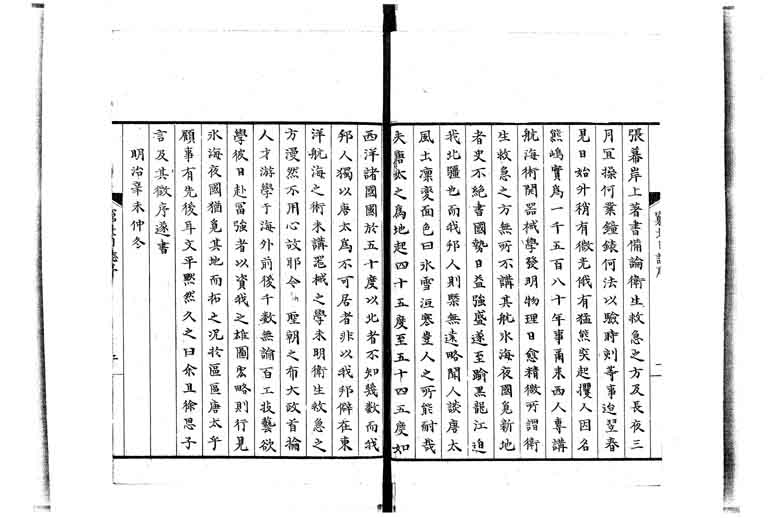 張幕岸上著書備論衛生救急之方及長夜三
月宜操何業鐘錶何法以驗時刻等事迨翌春
見日始外稍有微光俄有猛熊突起攫人因名
熊嶋實爲一千五百八十年事爾來西人專講
航海術開器械學發明物理日愈精微所謂衛
生救急之方無所不講其航氷海夜國覓新地
者史不絶書國勢日益強盛遂至踰黒龍江迫
我北疆也而我邦人則槩無遠略聞人談唐太
風土凛變面色曰氷雪沍寒豈人之所能耐哉
夫唐太之爲地起四十五度至五十四五度如
西洋諸國國於五十度以北者不知幾數而我
邦人獨以唐太爲不可居者非以我邦僻在東
洋航海之術未講器械之學未明衛生救急之
方漫然不用心故耶今 聖朝之布大政首掄
人才游學于海外前後千數無論百工技藝欲
學彼日赴冨強者以資我之雄圖宏略則行見
氷海夜國猶覓其地而拓之况於區區唐太乎
顧事有先後耳文平黙然久之曰余且徐思子
言及其徴序遂書
明治辛未仲冬